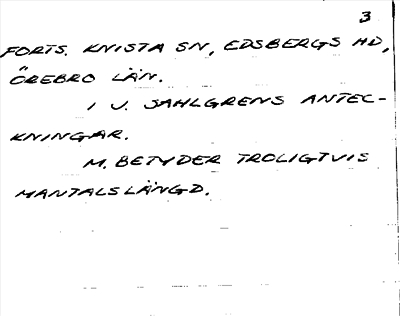 3
FORTS. KNISTA SN, EDSBERGS HD,
ÖREBRO LÄN.
I J. SAHLGRENS ANTEC-
KNINGAR.
M. BETYDER TROLIGTVIS
MANTALSLÄNGD.